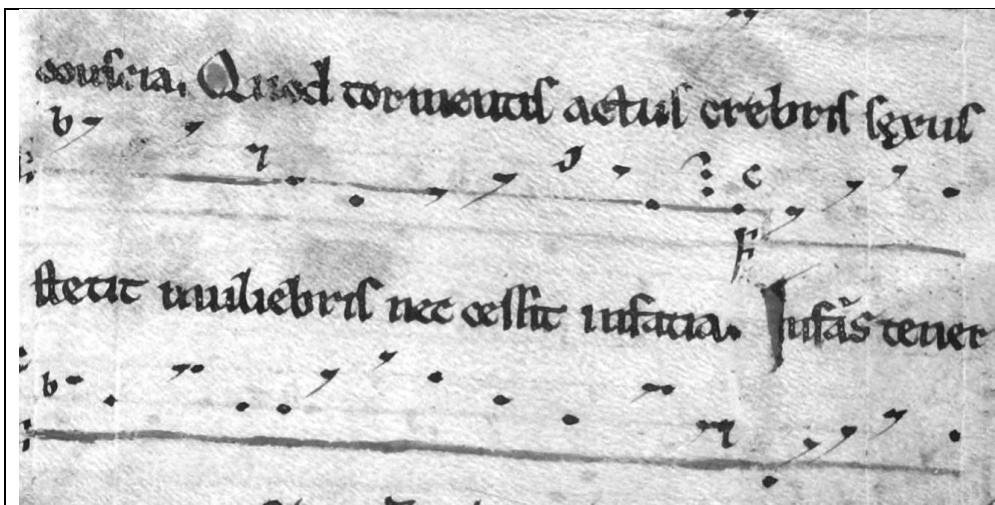 conscia. Quod tormentis actus crebris sexus
stetit muliebris nec cessit insatia. Infās tener